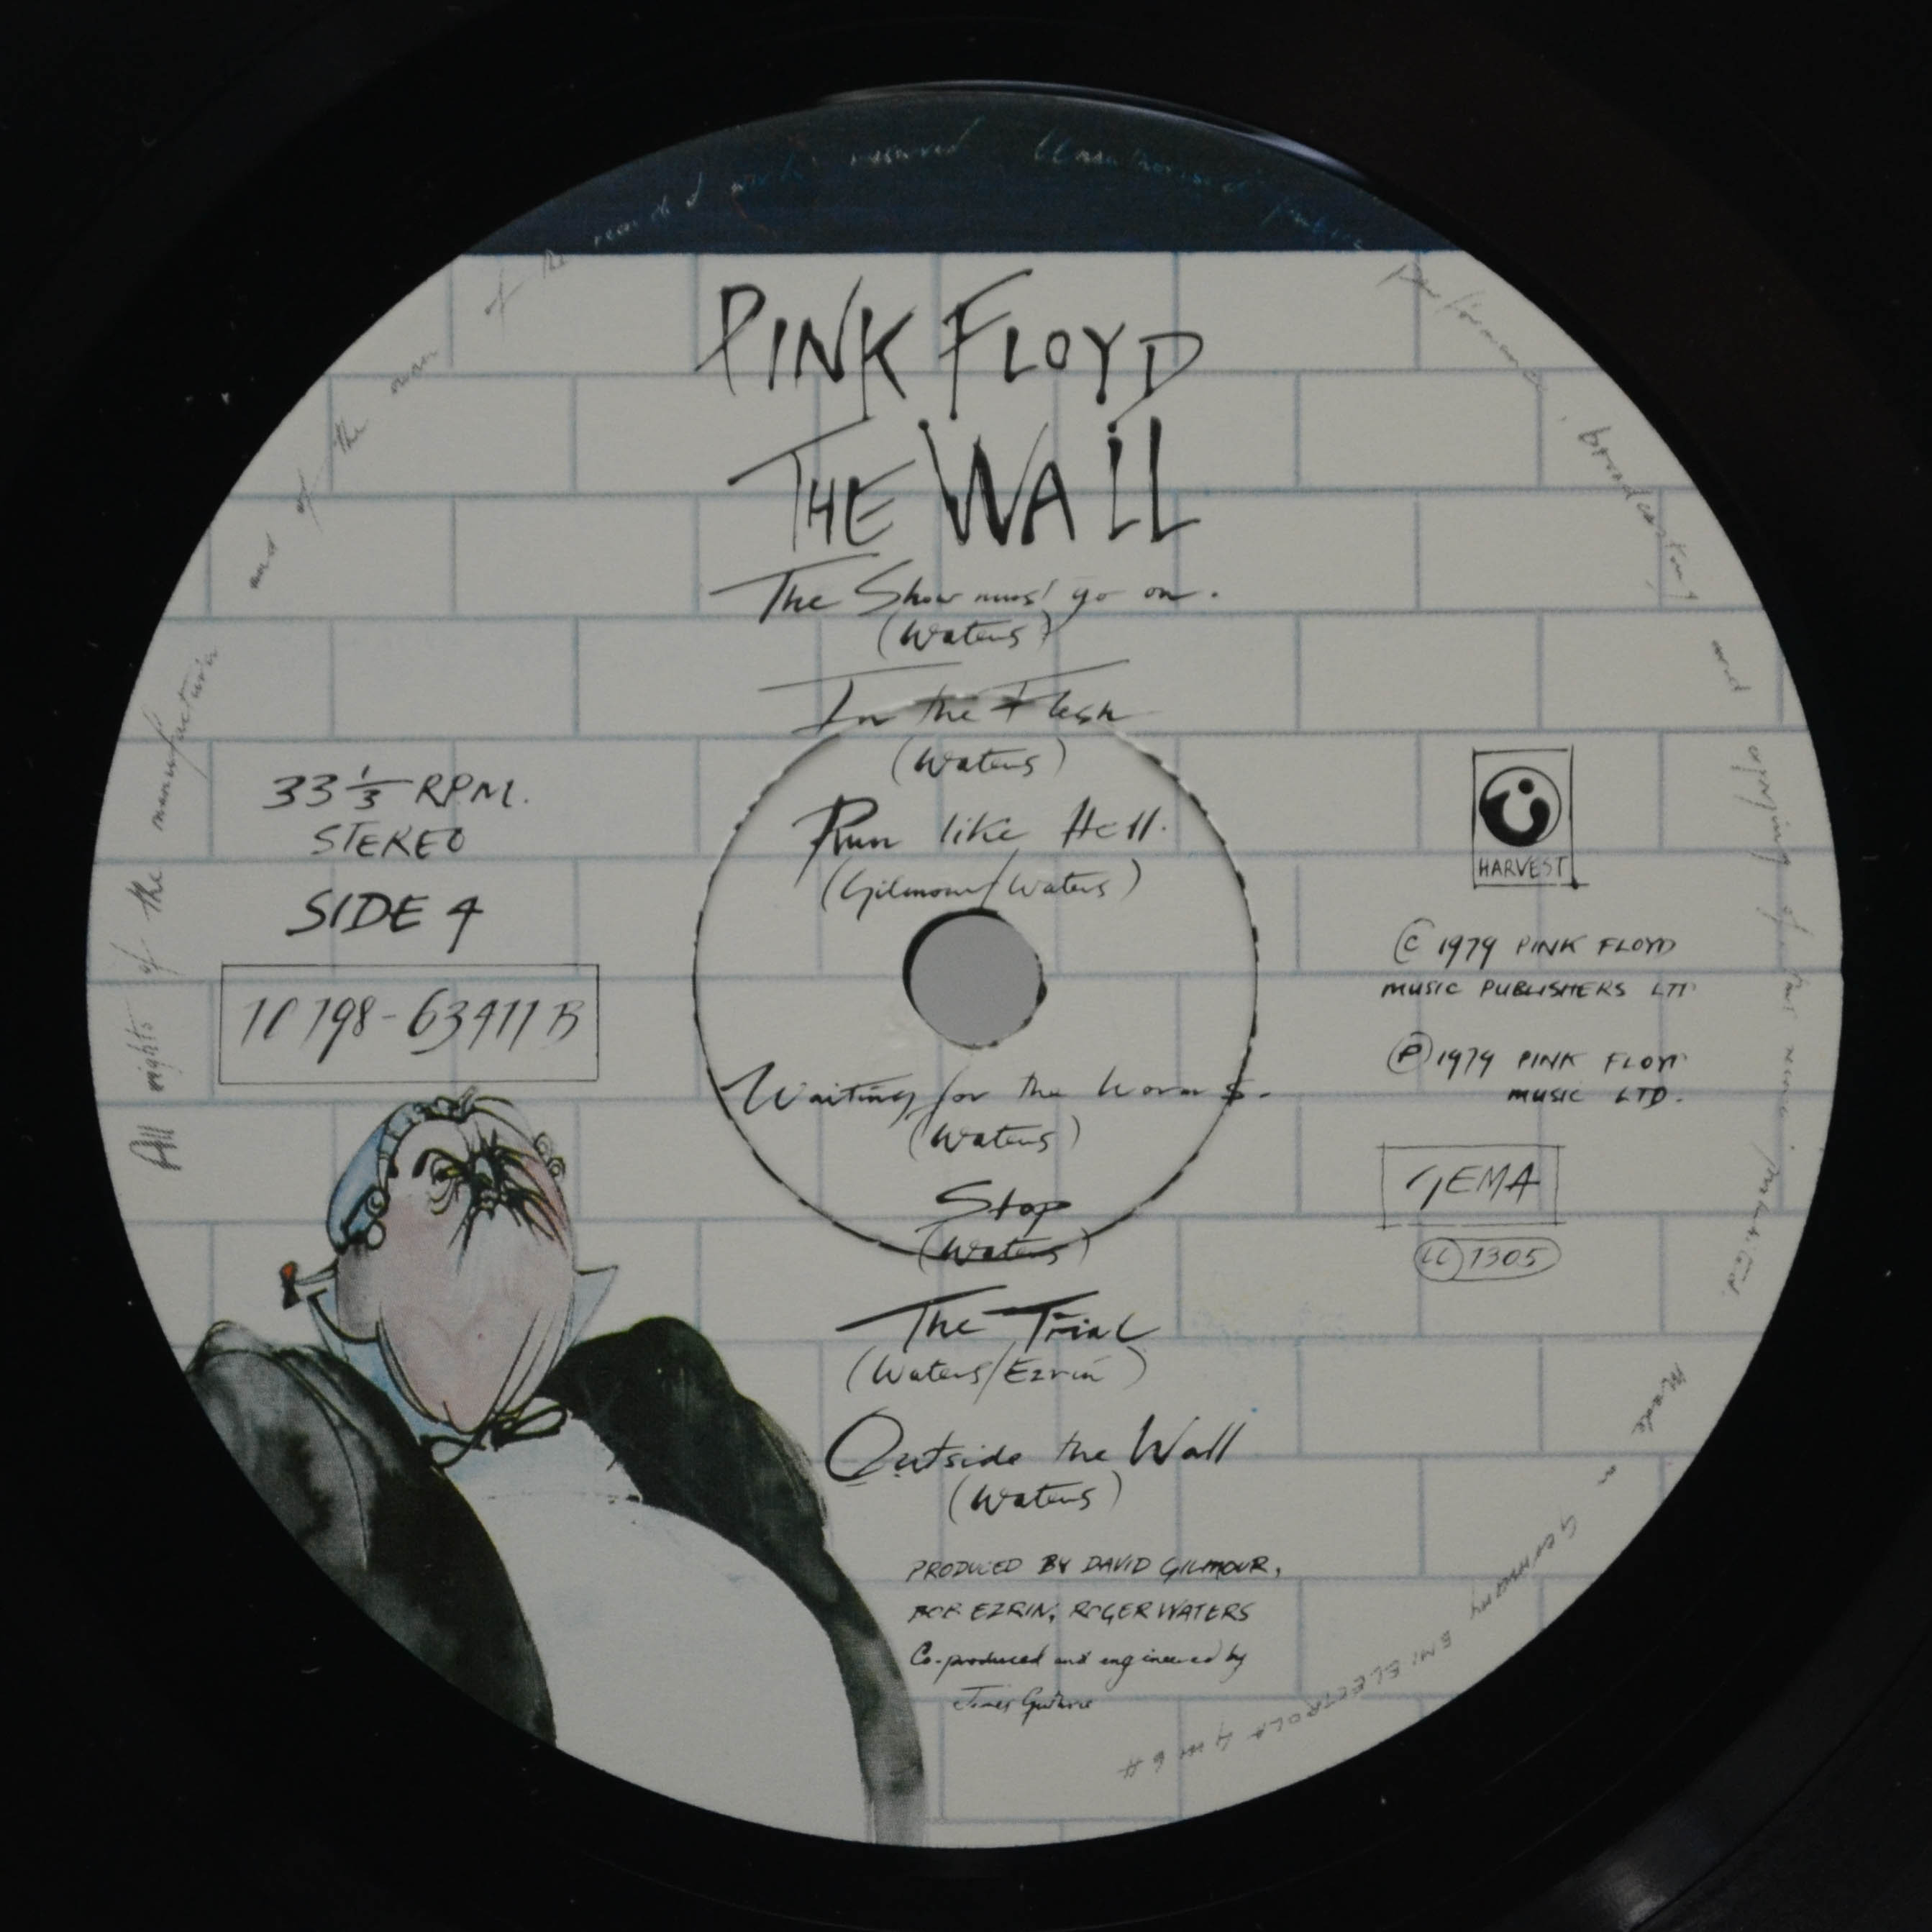 PINK FLOYD
THE WALL
The Show must go on.
(Waters)
In the Flesh
(Waters)
Run like Hell.
(Gilmour/Waters)
Waiting for the Worms.
(Waters)
Stop
(Waters)
The Trial
(Waters/Ezrin)
Outside the Wall
(Waters)
PRODUCED BY DAVID GILMOUR,
BOB EZRIN, ROGER WATERS
Co-produced and engineered by
James Guthrie
33 1/3 RPM.
STEREO
SIDE 4
1C 198-63411 B
HARVEST
© 1979 PINK FLOYD
MUSIC PUBLISHERS LTD
℗ 1979 PINK FLOYD
MUSIC LTD.
GEMA
LC 1305
All rights of the manufacturer and of the owner of the recorded work reserved Unauthorised public performance, broadcasting and copying of this record prohibited. Made in Germany EMI ELECTROLA GmbH